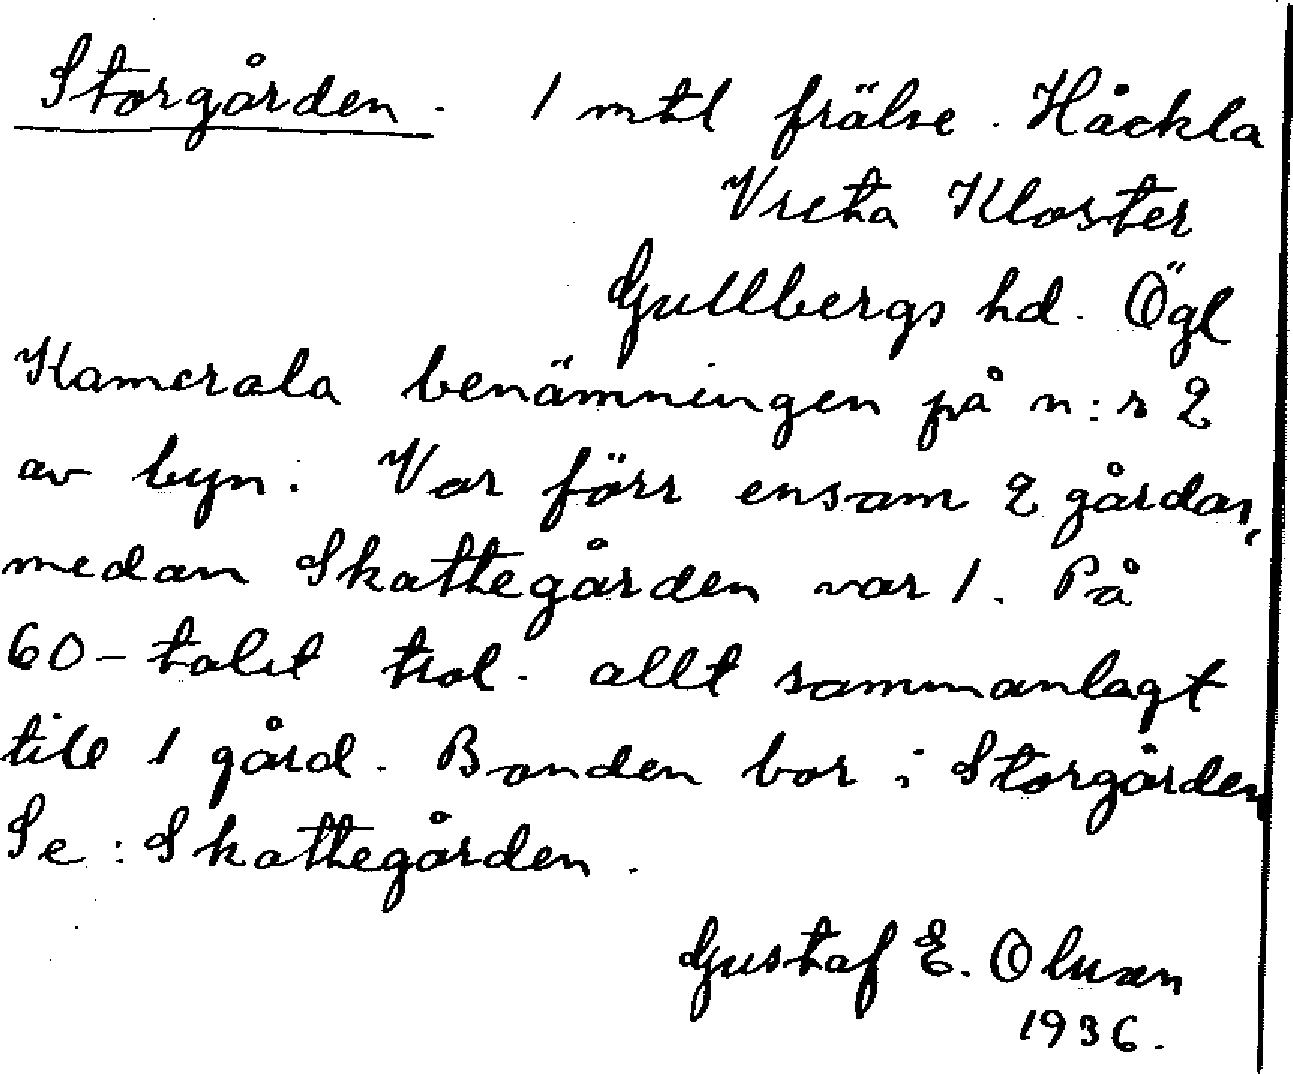 Storgården. 1 mtl frälse. Håckla
Vreta Kloster
Gullbergs hd. Ögl
Kamerala benämningen på n:r 2
av byn. Var förr ensam 2 gårdar,
medan Skattegården var 1. På
60-talet trol. allt sammanlagt
till 1 gård. Bonden bor i Storgården
Se: Skattegården.
Gustaf E. Olsson
1936.